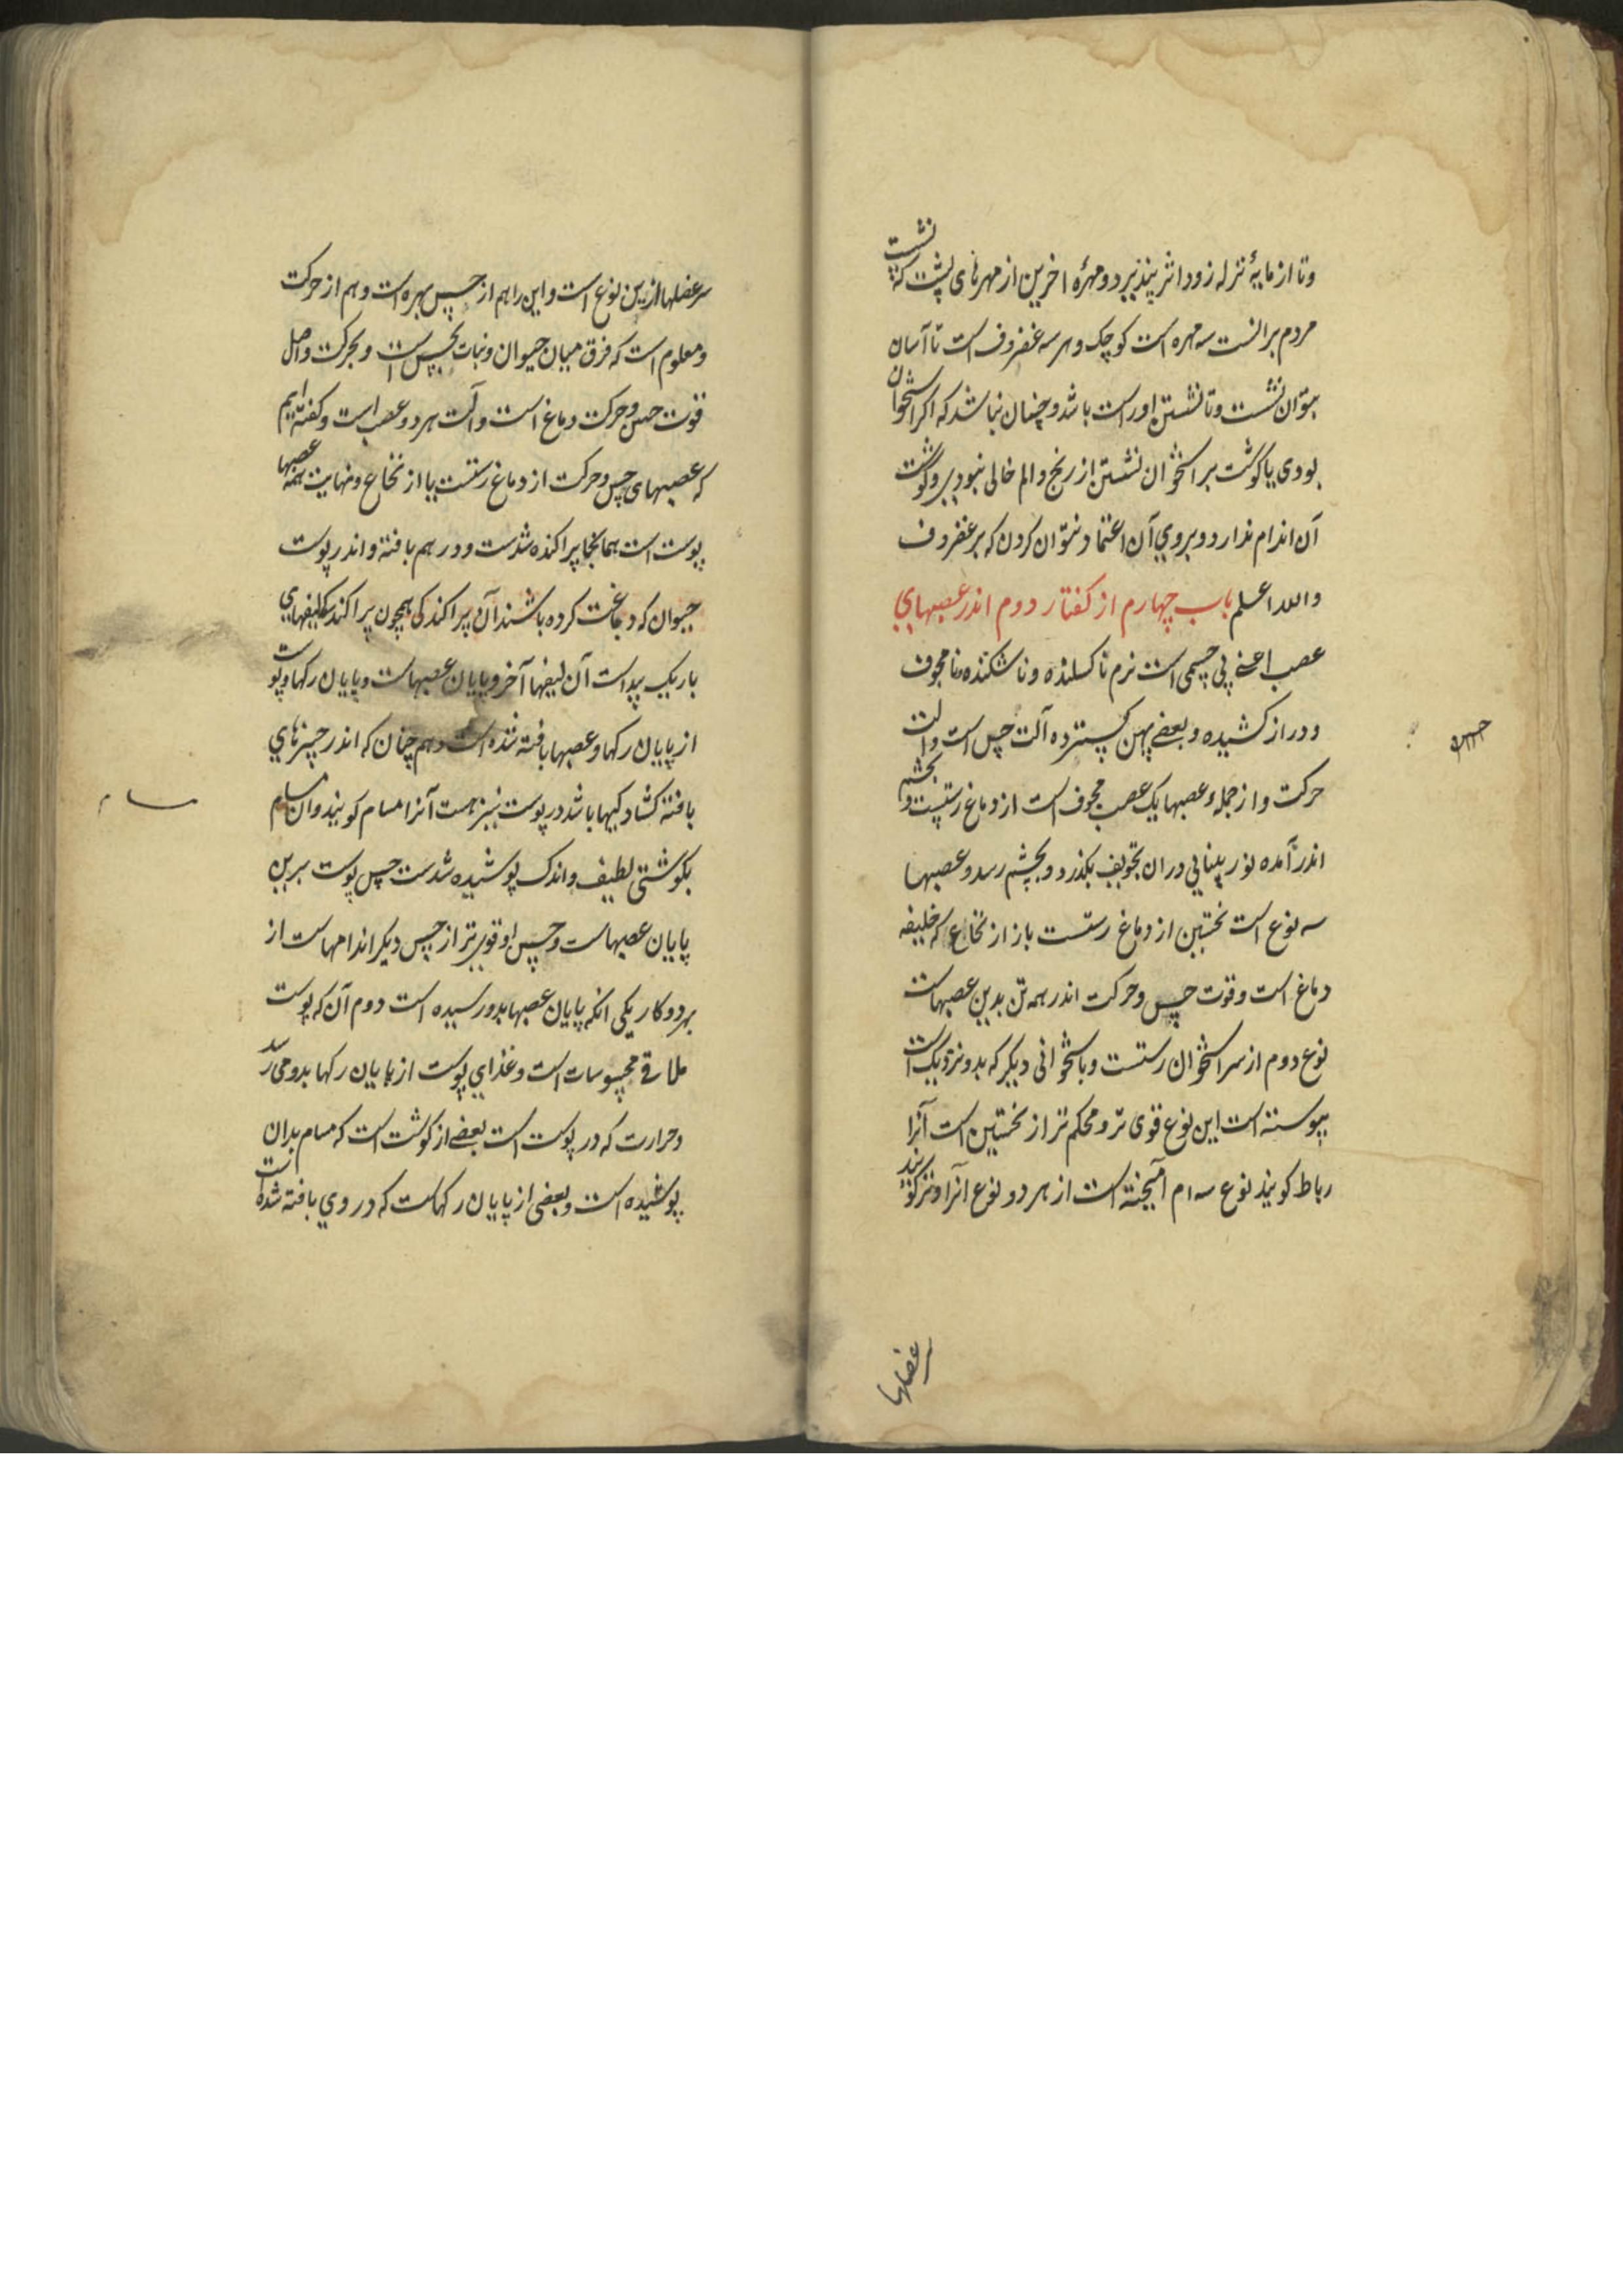 وتا از مایهٔ نزله زود اثر پنذیرد ومهرهٔ اخرین از مهرهای پشت که نشست
مردم برانست سه مهره است کوچک وهر سه غضروف است تا آسان
بتوان نشست وتا نشستن اوراست باشد وچنان نباشد که اکر استخوان
بودی یا کوشت بر استخوان نشستن از رنج والم خالی نبودی وکوشت
آن اندام ندارد وبروي آن اعتماد نتوان کردن که بر غضروف
والله اعلم باب چهارم از کفتار دوم اندر عصبهایي
عصب اعنی پی جسمی است نرم ناکسلنده وناشکننده نامجوف
ودراز کشیده وبعضی پهن کسترده آلت حس است والت
حرکت واز جمله عصبها یک عصب مجوف است از دماغ رستست وبچشم
اندر آمده نور بینایی دران تجویف بکذرد وبچشم رسد وعصبها
سه نوع است نخستین از دماغ رستست باز از نخاع که خلیفه
دماغ است وقوت حس وحرکت اندر همه تن بدین عصبهاست
نوع دوم از سر استخوان رستست وباستخوانی دیکر که بدو نزدیک است
پیوسته است این نوع قوی تر ومحکم تر از نخستین است آنرا
رباط کویند نوع سه ام آمیخته است از هر دو نوع آنرا وتر کویند
حس
عضلها
سر عضلها ازین نوع است واین را هم از حس بهره است وهم از حرکت
ومعلوم است که فرق میان حیوان ونبات بحس است وبحرکت واصل
قوت حس وحرکت دماغ است وآلت هردو عصب است وکفته ایم
که عصبهای حس وحرکت از دماغ رستست یا از نخاع ونهایت همه عصبها
پوست است همانجا پراکنده شدست ودر هم بافته واندر پوست
حیوان که دباغت کرده باشند آن پراکندکی همچون پراکندکی لیفهایي
باریک پیداست آن لیفها آخر وپایان عصبهاست وپایان رکها وپوست
از پایان رکها وعصبها بافته شده است وهم چنان که اندر چیزهاي
بافته کشادکیها باشد در پوست نیز هست آنرا مسام کویند وان مسام
بکوشتی لطیف واندک پوشیده شدست حس پوست برین
پایان عصبهاست وحس او قوی تر از حس دیکر اندامهاست از
بهر دو کار یکی انکه پایان عصبها بدو رسیده است دوم آن که پوست
ملاقی محسوسات است وغذاي پوست از پایان رکها بدو می رسد
وحرارت که در پوست است بعضی از کوشت است که مسام بدان
پوشیده است وبعضی از پایان رکهاست که در وي بافته شده است
مسام